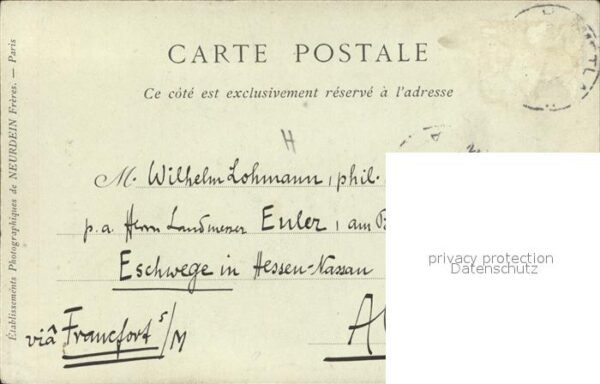 CARTE POSTALE
Ce côté est exclusivement réservé à l'adresse
H
M. Wilhelm Lohmann, phil.
p.a Herrn Landmesser Euler, am
Eschwege in Hessen-Nassau
viâ Francfort s/M
privacy protection
Datenschutz
Établissements Photographiques de NEURDEIN Frères. — Paris